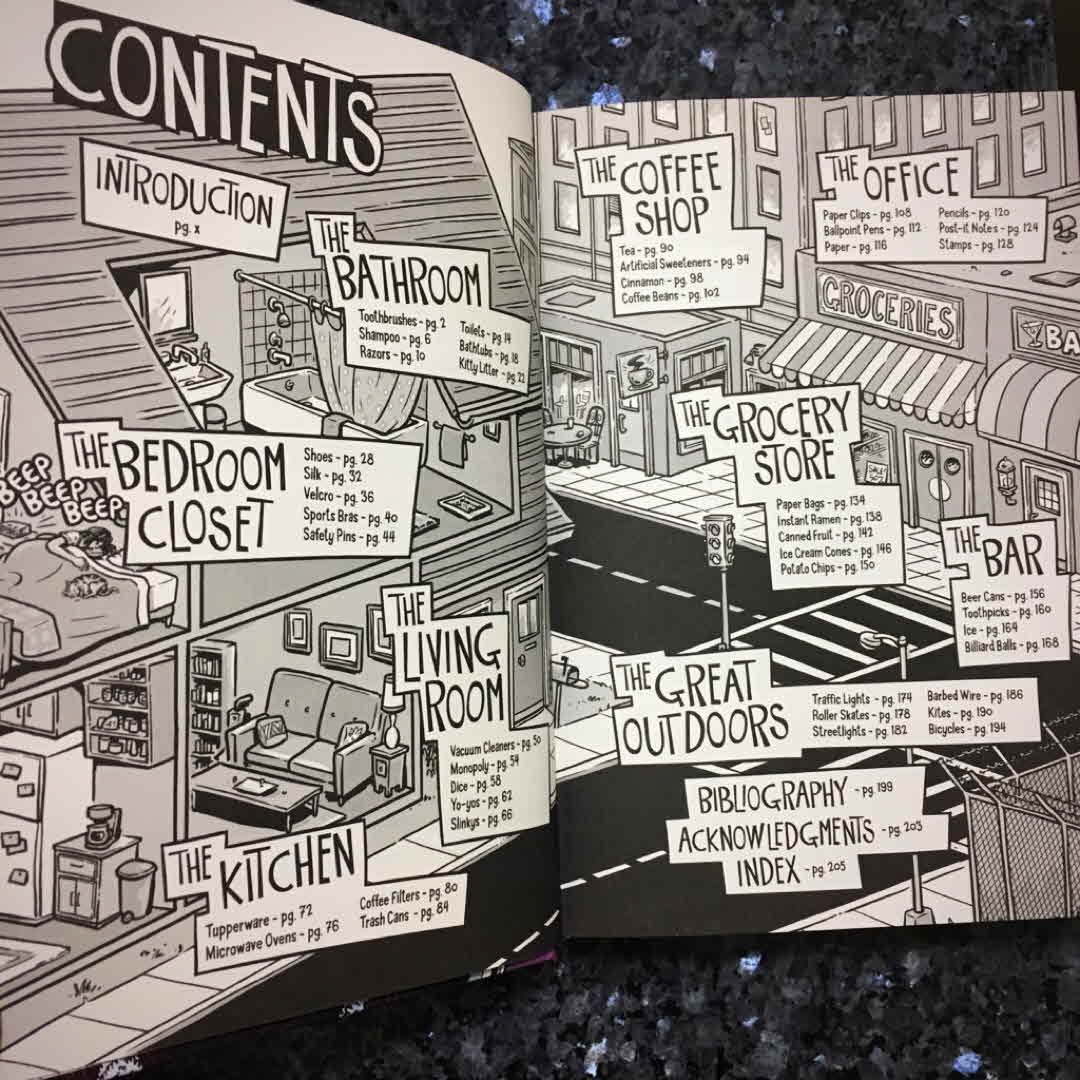 CONTENTS
INTRODUCTION
pg. x
THE
BATHROOM
Toothbrushes - pg. 2
Shampoo - pg. 6
Razors - pg. 10
Toilets - pg. 14
Bathtubs - pg. 18
Kitty Litter - pg. 22
THE BEDROOM
CLOSET
Shoes - pg. 28
Silk - pg. 32
Velcro - pg. 36
Sports Bras - pg. 40
Safety Pins - pg. 44
BEEP
BEEP
BEEP
THE
LIVING
ROOM
Vacuum Cleaners - pg. 50
Monopoly - pg. 54
Dice - pg. 58
Yo-yos - pg. 62
Slinkys - pg. 66
THE KITCHEN
Tupperware - pg. 72
Microwave Ovens - pg. 76
Coffee Filters - pg. 80
Trash Cans - pg. 84
THE COFFEE
SHOP
Tea - pg. 90
Artificial Sweeteners - pg. 94
Cinnamon - pg. 98
Coffee Beans - pg. 102
THE OFFICE
Paper Clips - pg. 108
Ballpoint Pens - pg. 112
Paper - pg. 116
Pencils - pg. 120
Post-it Notes - pg. 124
Stamps - pg. 128
GROCERIES
BA
THE GROCERY
STORE
Paper Bags - pg. 134
Instant Ramen - pg. 138
Canned Fruit - pg. 142
Ice Cream Cones - pg. 146
Potato Chips - pg. 150
SALE
THE BAR
Beer Cans - pg. 156
Toothpicks - pg. 160
Ice - pg. 164
Billiard Balls - pg. 168
THE GREAT
OUTDOORS
Traffic Lights - pg. 174
Roller Skates - pg. 178
Streetlights - pg. 182
Barbed Wire - pg. 186
Kites - pg. 190
Bicycles - pg. 194
BIBLIOGRAPHY - pg. 199
ACKNOWLEDGMENTS - pg. 203
INDEX - pg. 205